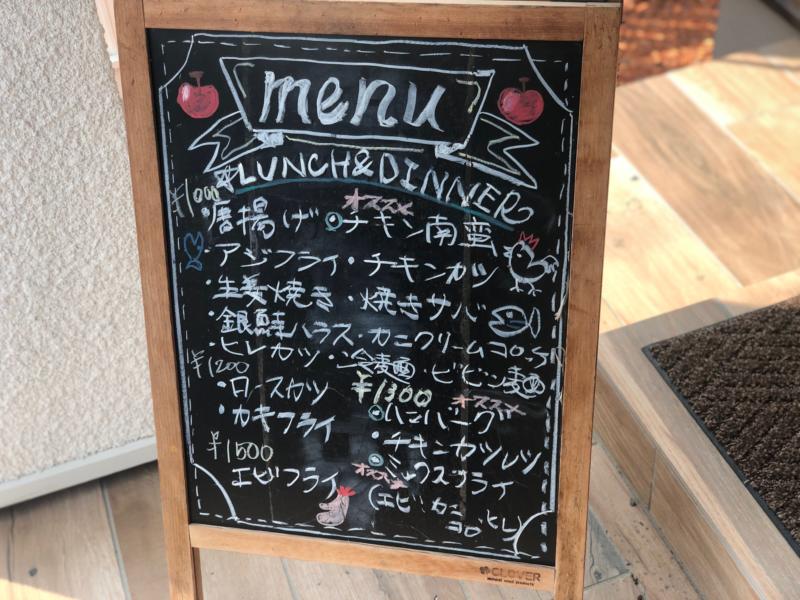 menu
LUNCH&DINNER
¥1000
オススメ
・唐揚げ ・チキン南蛮
・アジフライ・チキンカツ
・生姜焼き・焼きサバ
・銀鮭ハラス・カニクリームコロッケ
・ヒレカツ・冷麺・ビビン麺
¥1200
・ロースカツ
・カキフライ
¥1300
オススメ
・ハンバーグ
・チキンカツレツ
・ミックスフライ
オススメ
(エビ・カニコロ・ヒレ)
¥1500
エビフライ
CLOVER